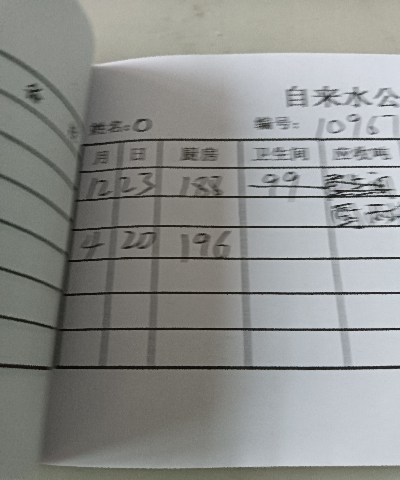 自来水公
姓名:0 编号:10967
月 日 厨房 卫生间 应收吨
12 23 183 99
4 20 196